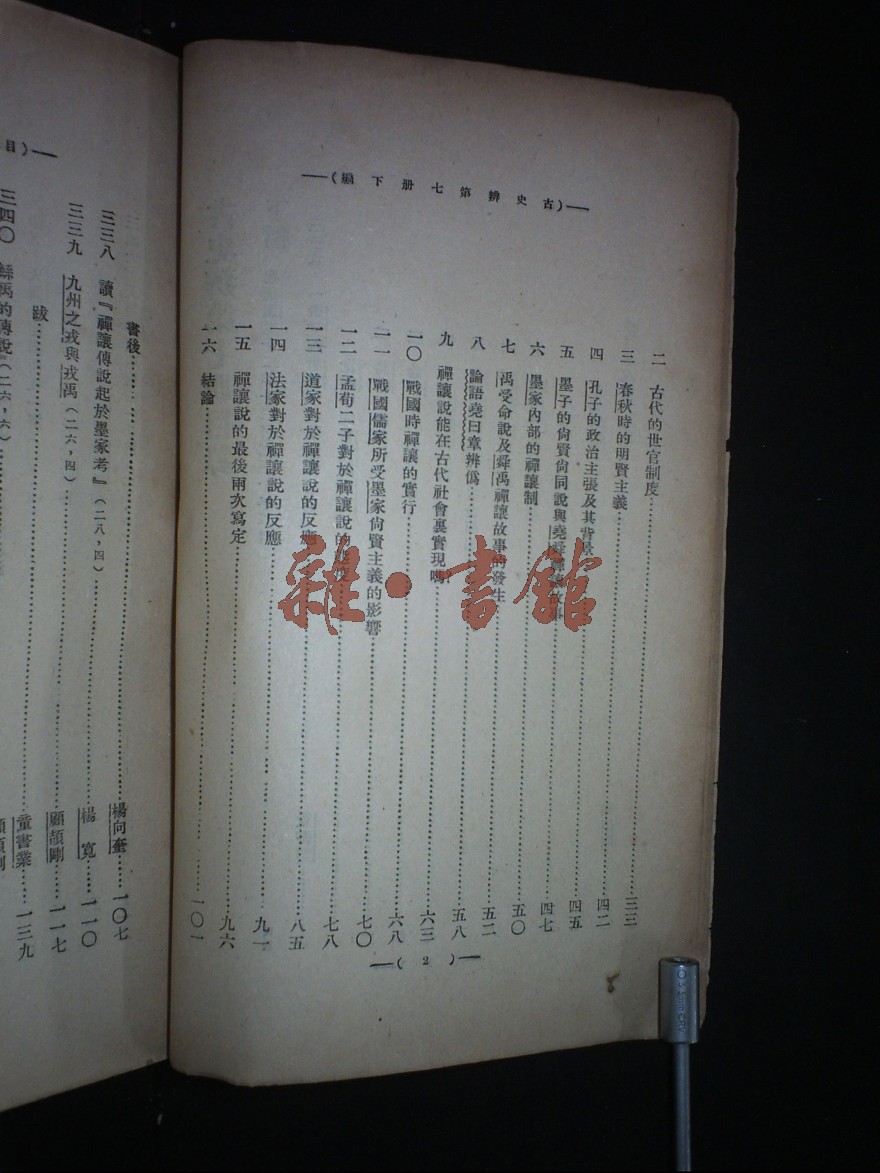 —(古史辨第七册下編)—
二 古代的世官制度……三三
三 春秋時的明賢主義……四二
四 孔子的政治主張及其背景……四五
五 墨子的尚賢尚同說與堯舜禪讓故事……四七
六 墨家內部的禪讓制……五〇
七 禹受命說及舜禹禪讓故事的發生……五二
八 論語堯曰章辨僞……五八
九 禪讓說能在古代社會裏實現嗎……六三
一〇 戰國時禪讓的實行……六八
一一 戰國儒家所受墨家尚賢主義的影響……七〇
一二 孟荀二子對於禪讓說的態度……七八
一三 道家對於禪讓說的反應……八五
一四 法家對於禪讓說的反應……九一
一五 禪讓說的最後兩次寫定……九六
一六 結論……一〇一
—( 2 )—
雜·書館
目)—
書後……楊向奎……一〇七
三三八 讀『禪讓傳說起於墨家考』(二八,四)……楊寬……一一〇
三三九 九州之戎與戎禹(二六,四)……顧頡剛……一一七
跋……童書業……一三九
三四〇 鯀禹的傳說(二六,六)……顧頡剛